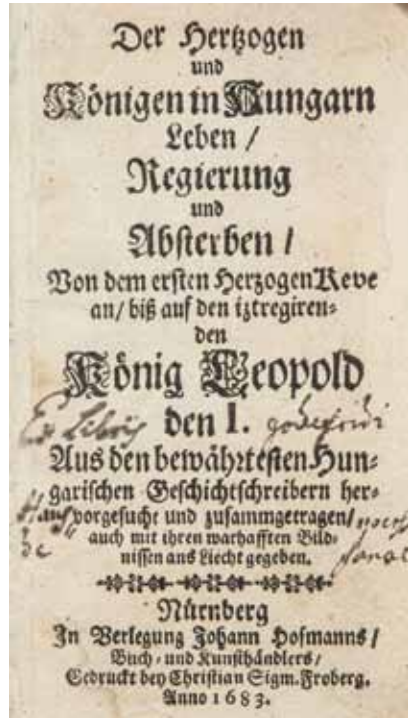 Der Hertzogen
und
Königen in Hungarn
Leben /
Regierung
und
Absterben /
Von dem ersten Herzogen Keve
an / biß auf den iztregiren-
den
König Leopold
Ex Libris den I. godefridi
Aus den bewährtesten Hun-
garischen Geschichtschreibern her-
vorgesucht und zusammgetragen /
auch mit ihren warhafften Bild-
nissen ans Liecht gegeben.
Nürnberg
In Verlegung Johann Hofmanns /
Buch- und Kunsthändlers /
Gedruckt bey Christian Sigm. Froberg.
Anno 1683.